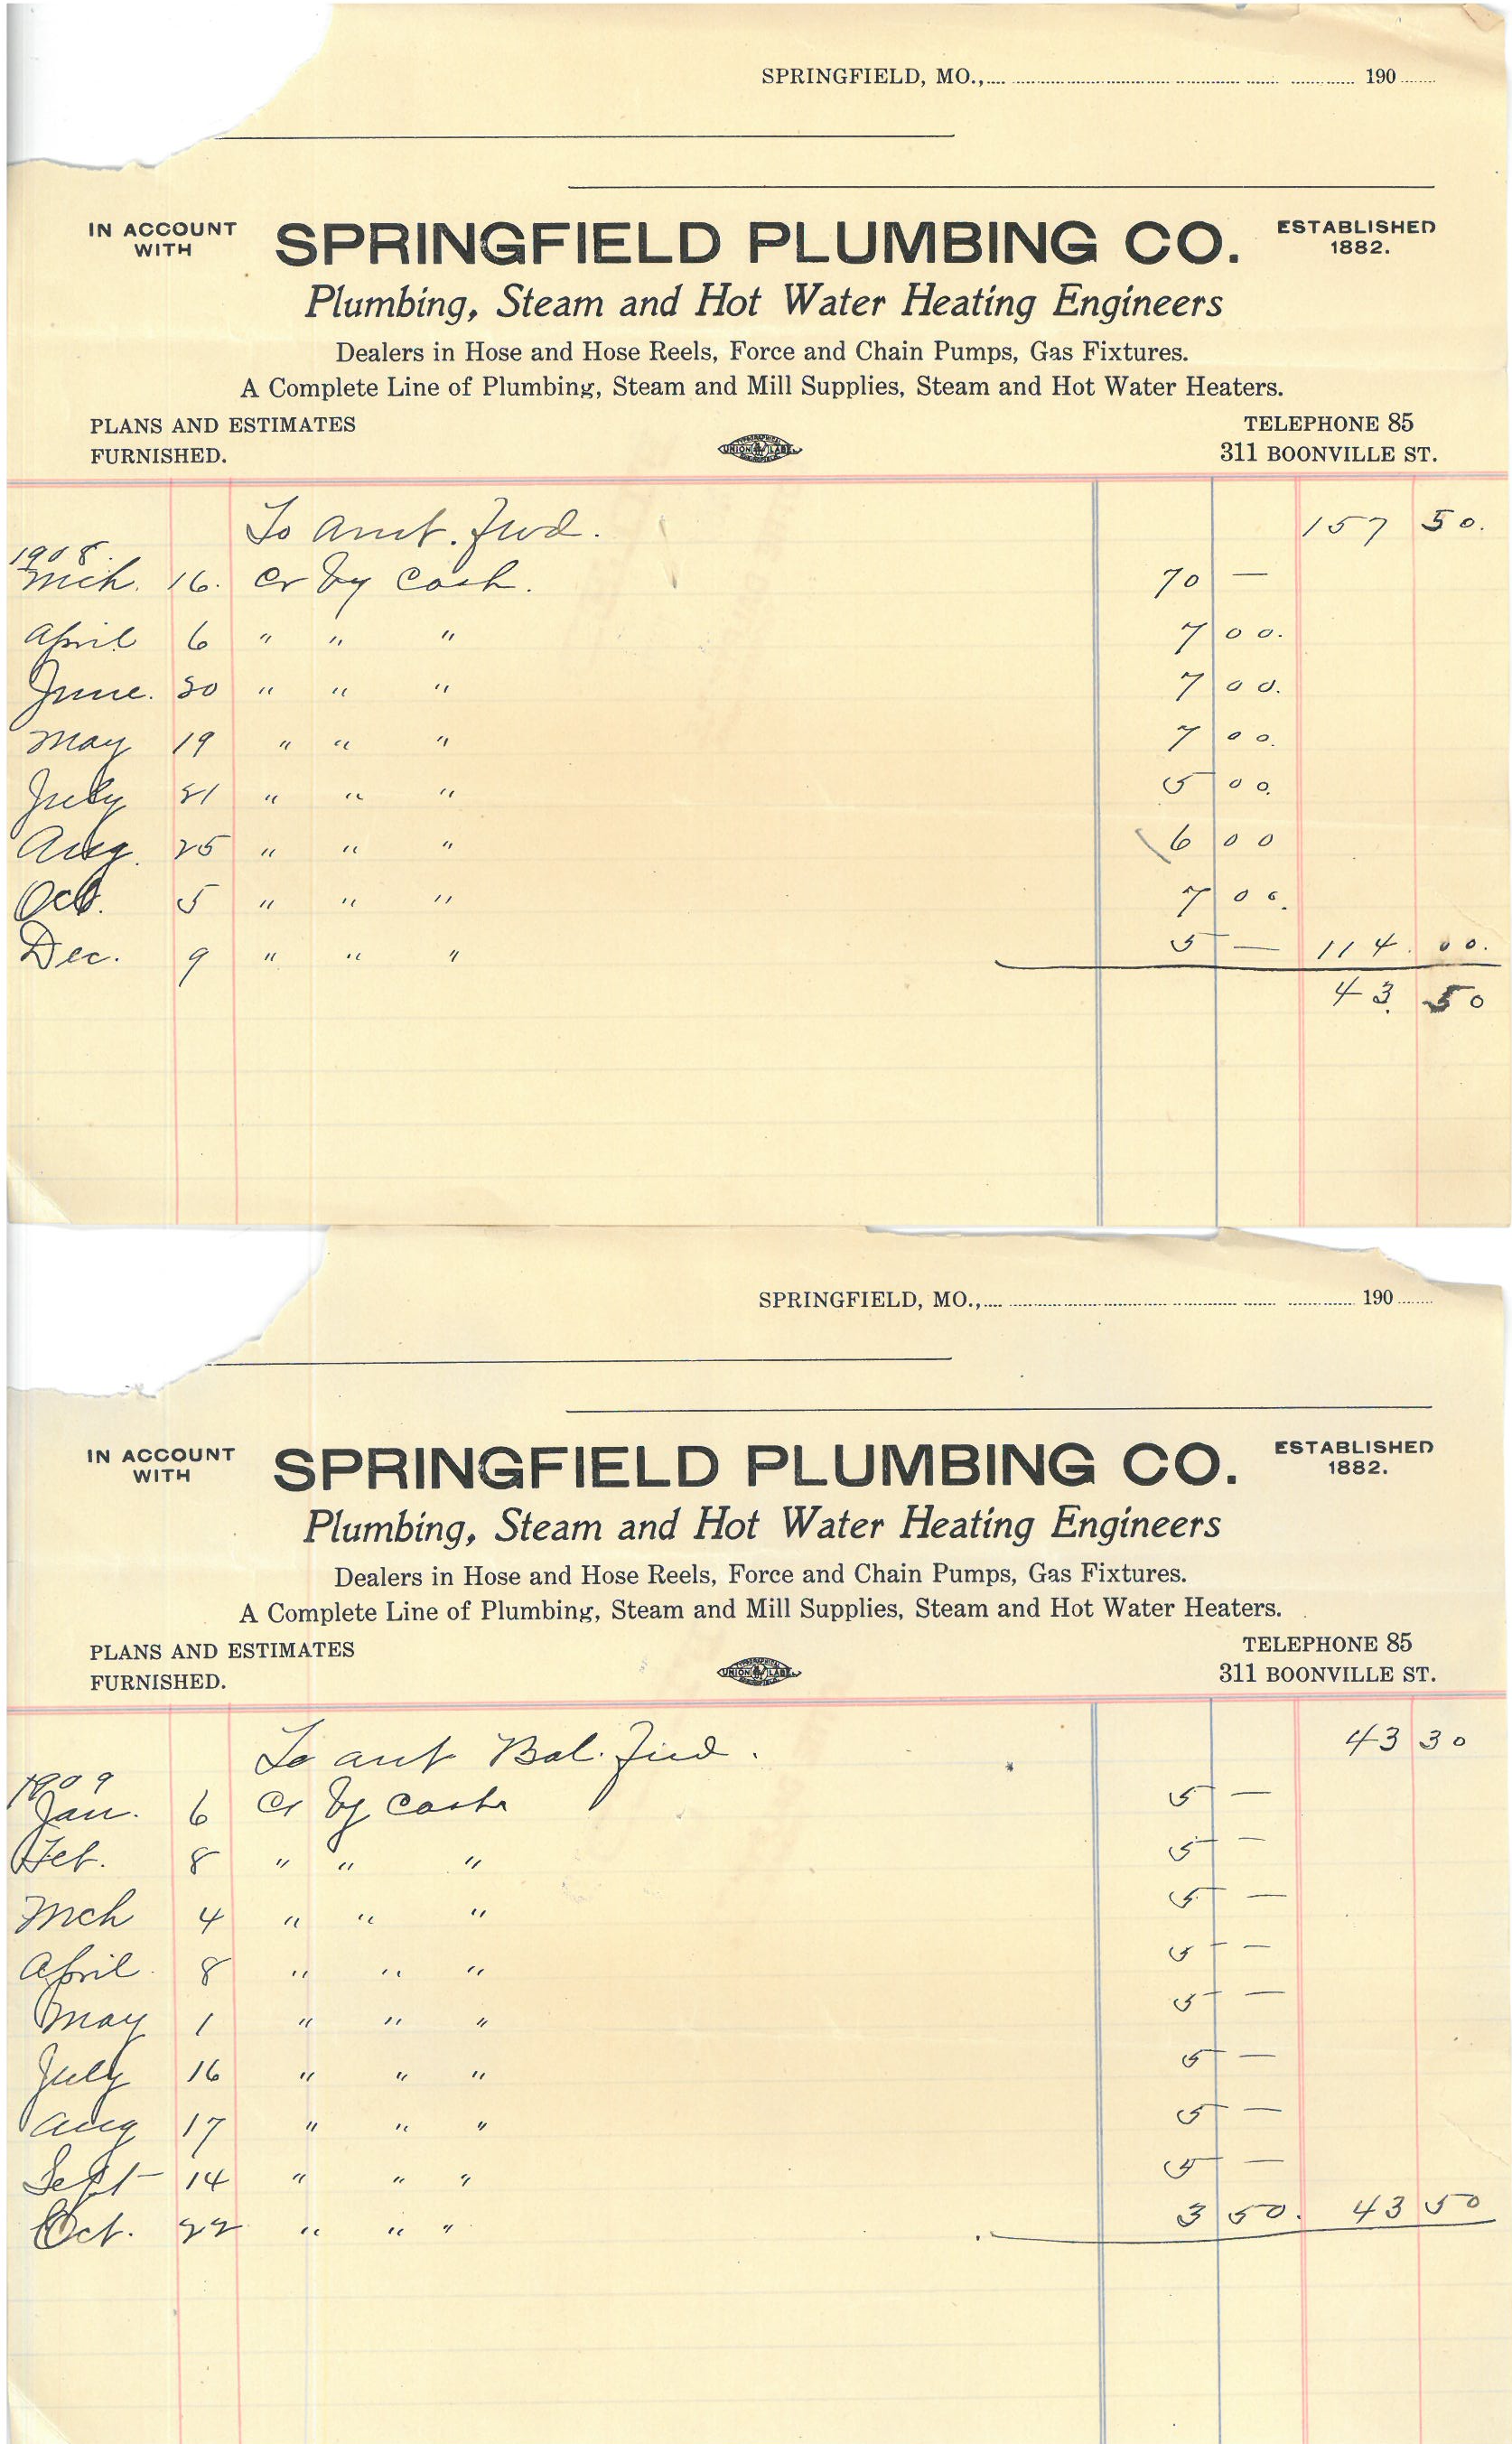 SPRINGFIELD, MO., 190
IN ACCOUNT WITH SPRINGFIELD PLUMBING CO. ESTABLISHED 1882.
Plumbing, Steam and Hot Water Heating Engineers
Dealers in Hose and Hose Reels, Force and Chain Pumps, Gas Fixtures.
A Complete Line of Plumbing, Steam and Mill Supplies, Steam and Hot Water Heaters.
PLANS AND ESTIMATES TELEPHONE 85
FURNISHED. UNION LABEL 311 BOONVILLE ST.
To Amt. Fwd. 157 50.
1908.
Mch. 16. Cr by Cash. 70 —
April 6 " " " 7 00.
June. 30 " " " 7 00.
May 19 " " " 7 00.
July 21 " " " 5 00.
Aug. 25 " " " 6 00
Oct. 5 " " " 7 00.
Dec. 9 " " " 5 — 114. 00.
43. 50
SPRINGFIELD, MO., 190
IN ACCOUNT WITH SPRINGFIELD PLUMBING CO. ESTABLISHED 1882.
Plumbing, Steam and Hot Water Heating Engineers
Dealers in Hose and Hose Reels, Force and Chain Pumps, Gas Fixtures.
A Complete Line of Plumbing, Steam and Mill Supplies, Steam and Hot Water Heaters.
PLANS AND ESTIMATES TELEPHONE 85
FURNISHED. UNION LABEL 311 BOONVILLE ST.
To amt Bal. Fwd. 43 30
1909
Jan. 6 Cr by Cash 5 —
Feb. 8 " " " 5 —
Mch 4 " " " 5 —
April. 8 " " " 5 —
May 1 " " " 5 —
July 16 " " " 5 —
Aug 17 " " " 5 —
Sept 14 " " " 5 —
Oct. 22 " " " 3 50. 43 50